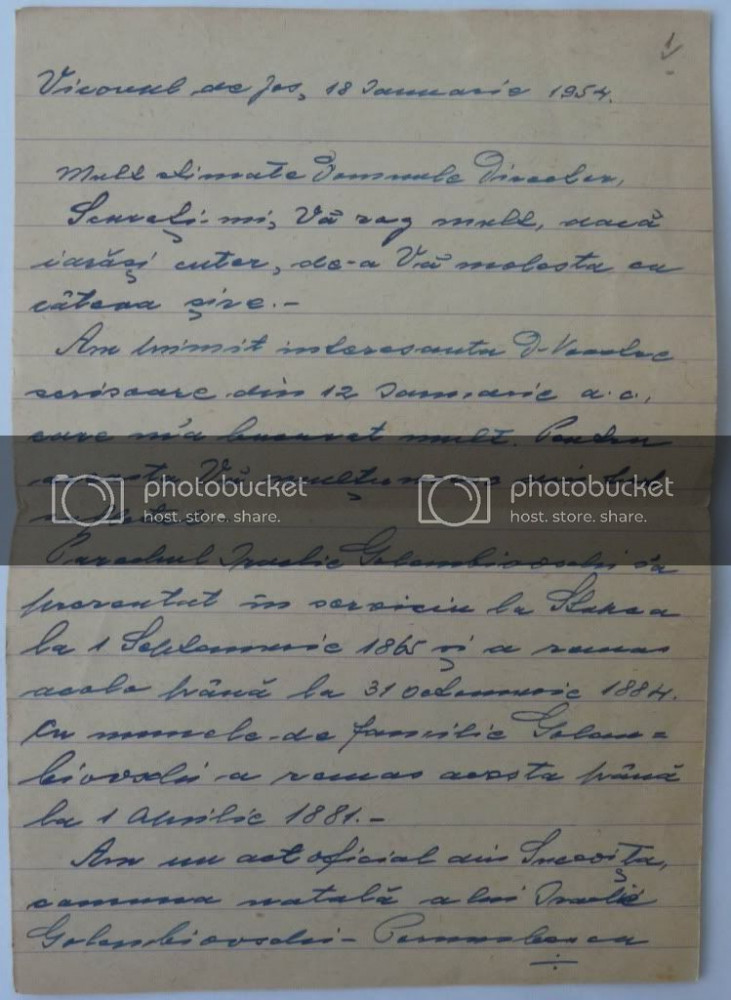 1
Vicovul de Jos, 18 Ianuarie 1954.
Mult stimate Domnule Director,
Scuzați-mi, Vă rog mult, dacă
iarăși cutez, de-a Vă molesta cu
câteva șire.-
Am primit interesanta D-Voastre
scrisoare din 12 Ianuarie a.c.,
care m'a bucurat mult. Pentru
aceasta Vă mulțumesc
photobucket photobucket
host. store. share. host. store. share.
Parochul Iraclie Golembiovschi s'a
prezentat în serviciu la Stupca
la 1 Septemvrie 1865 și a rămas
acolo până la 31 Octomvrie 1884.
Cu numele de familie Golem=
biovschi a rămas acesta până
la 1 Aprilie 1881.-
Am un act oficial din Sucevița,
comuna natală a lui Iraclie
Golembiovschi - Porumbescu